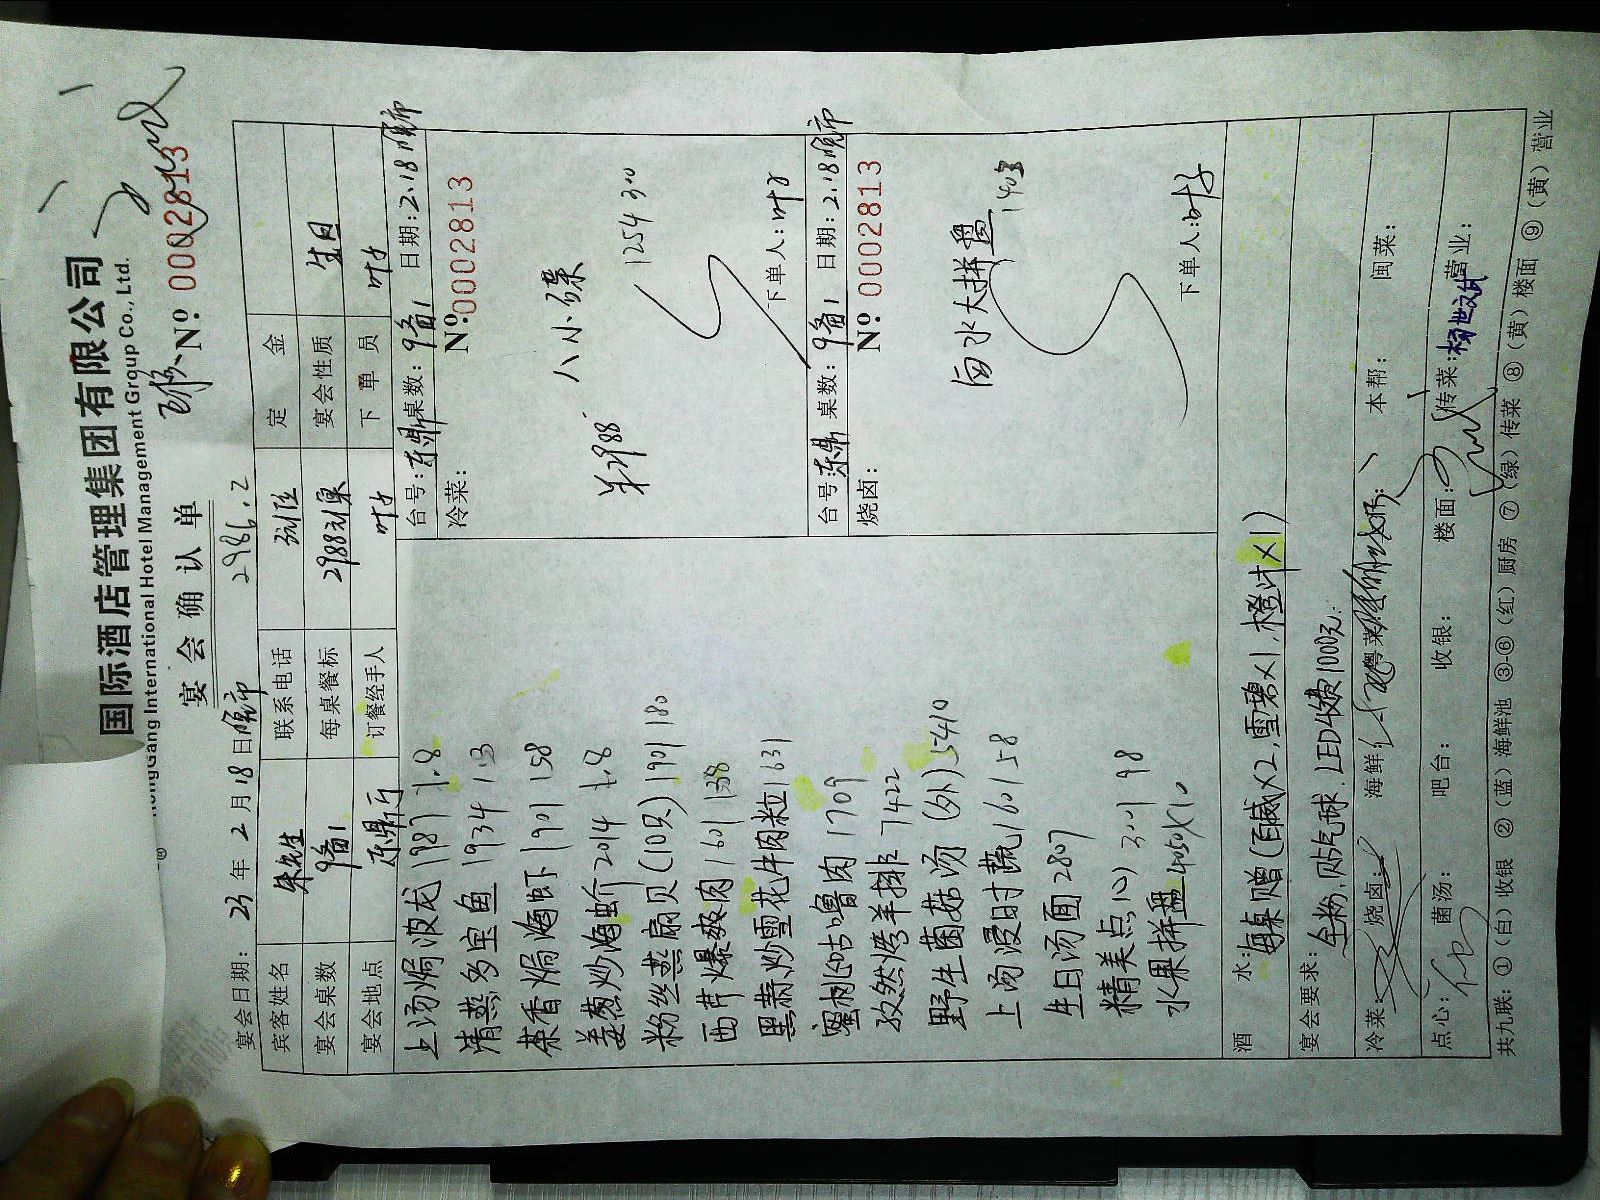 国际酒店管理集团有限公司
HongGang International Hotel Management Group Co., Ltd.
宴会确认单
№: 0002813
宴会日期: 23 年 2 月 18 日 晚市 2986.2
宾客姓名 朱先生 联系电话 定金
宴会桌数 9备1 每桌餐标 宴会性质 生日
宴会地点 东鼎 订餐经手人 叶子 下单员 叶子
上汤焗波龙 1987 1.8
清蒸多宝鱼 1934 1.3
茶香焗海虾 1901 158
姜葱炒海蛤 2014 1.8
粉丝蒸扇贝(10只) 1901 180
西芹爆螺肉 1601 138
黑蒜炒雪花牛肉粒 1631
蜜桃咕噜肉 1709
孜然烤羊排 7422
野生菌菇汤(外) 5410
上汤浸时蔬 1601 58
生日汤面 2807
精美点心 3001 98
水果拼盘 4050X10
台号: 东鼎 桌数: 9备1 日期: 2.18 晚市
冷菜: №: 0002813
八小碟
1254 300
下单人: 叶子
台号: 东鼎 桌数: 9备1 日期: 2.18 晚市
烧卤: № 0002813
卤水大拼盘
1403
下单人: 叶子
酒水: 每桌赠(百威X2,雪碧X1,橙汁X1)
宴会要求: 全粉,贴气球 LED收费1000元.
冷菜: 烧卤: 海鲜: 粤菜: 本帮: 闽菜:
点心: 菌汤: 吧台: 收银: 楼面: 传菜: 营业:
共九联: ①(白)收银 ②(蓝)海鲜池 ③-⑥(红)厨房 ⑦(绿)传菜 ⑧(黄)楼面 ⑨(黄)营业